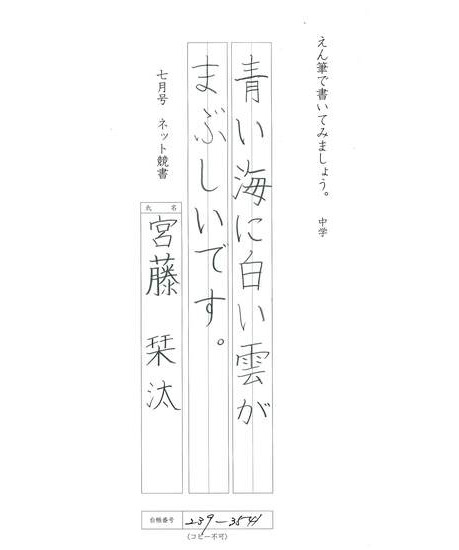 えん筆で書いてみましょう。 中学
青い海に白い雲が
まぶしいです。
七月号 ネット競書
氏名
宮藤 栞汰
台帳番号 239-3541
(コピー不可)